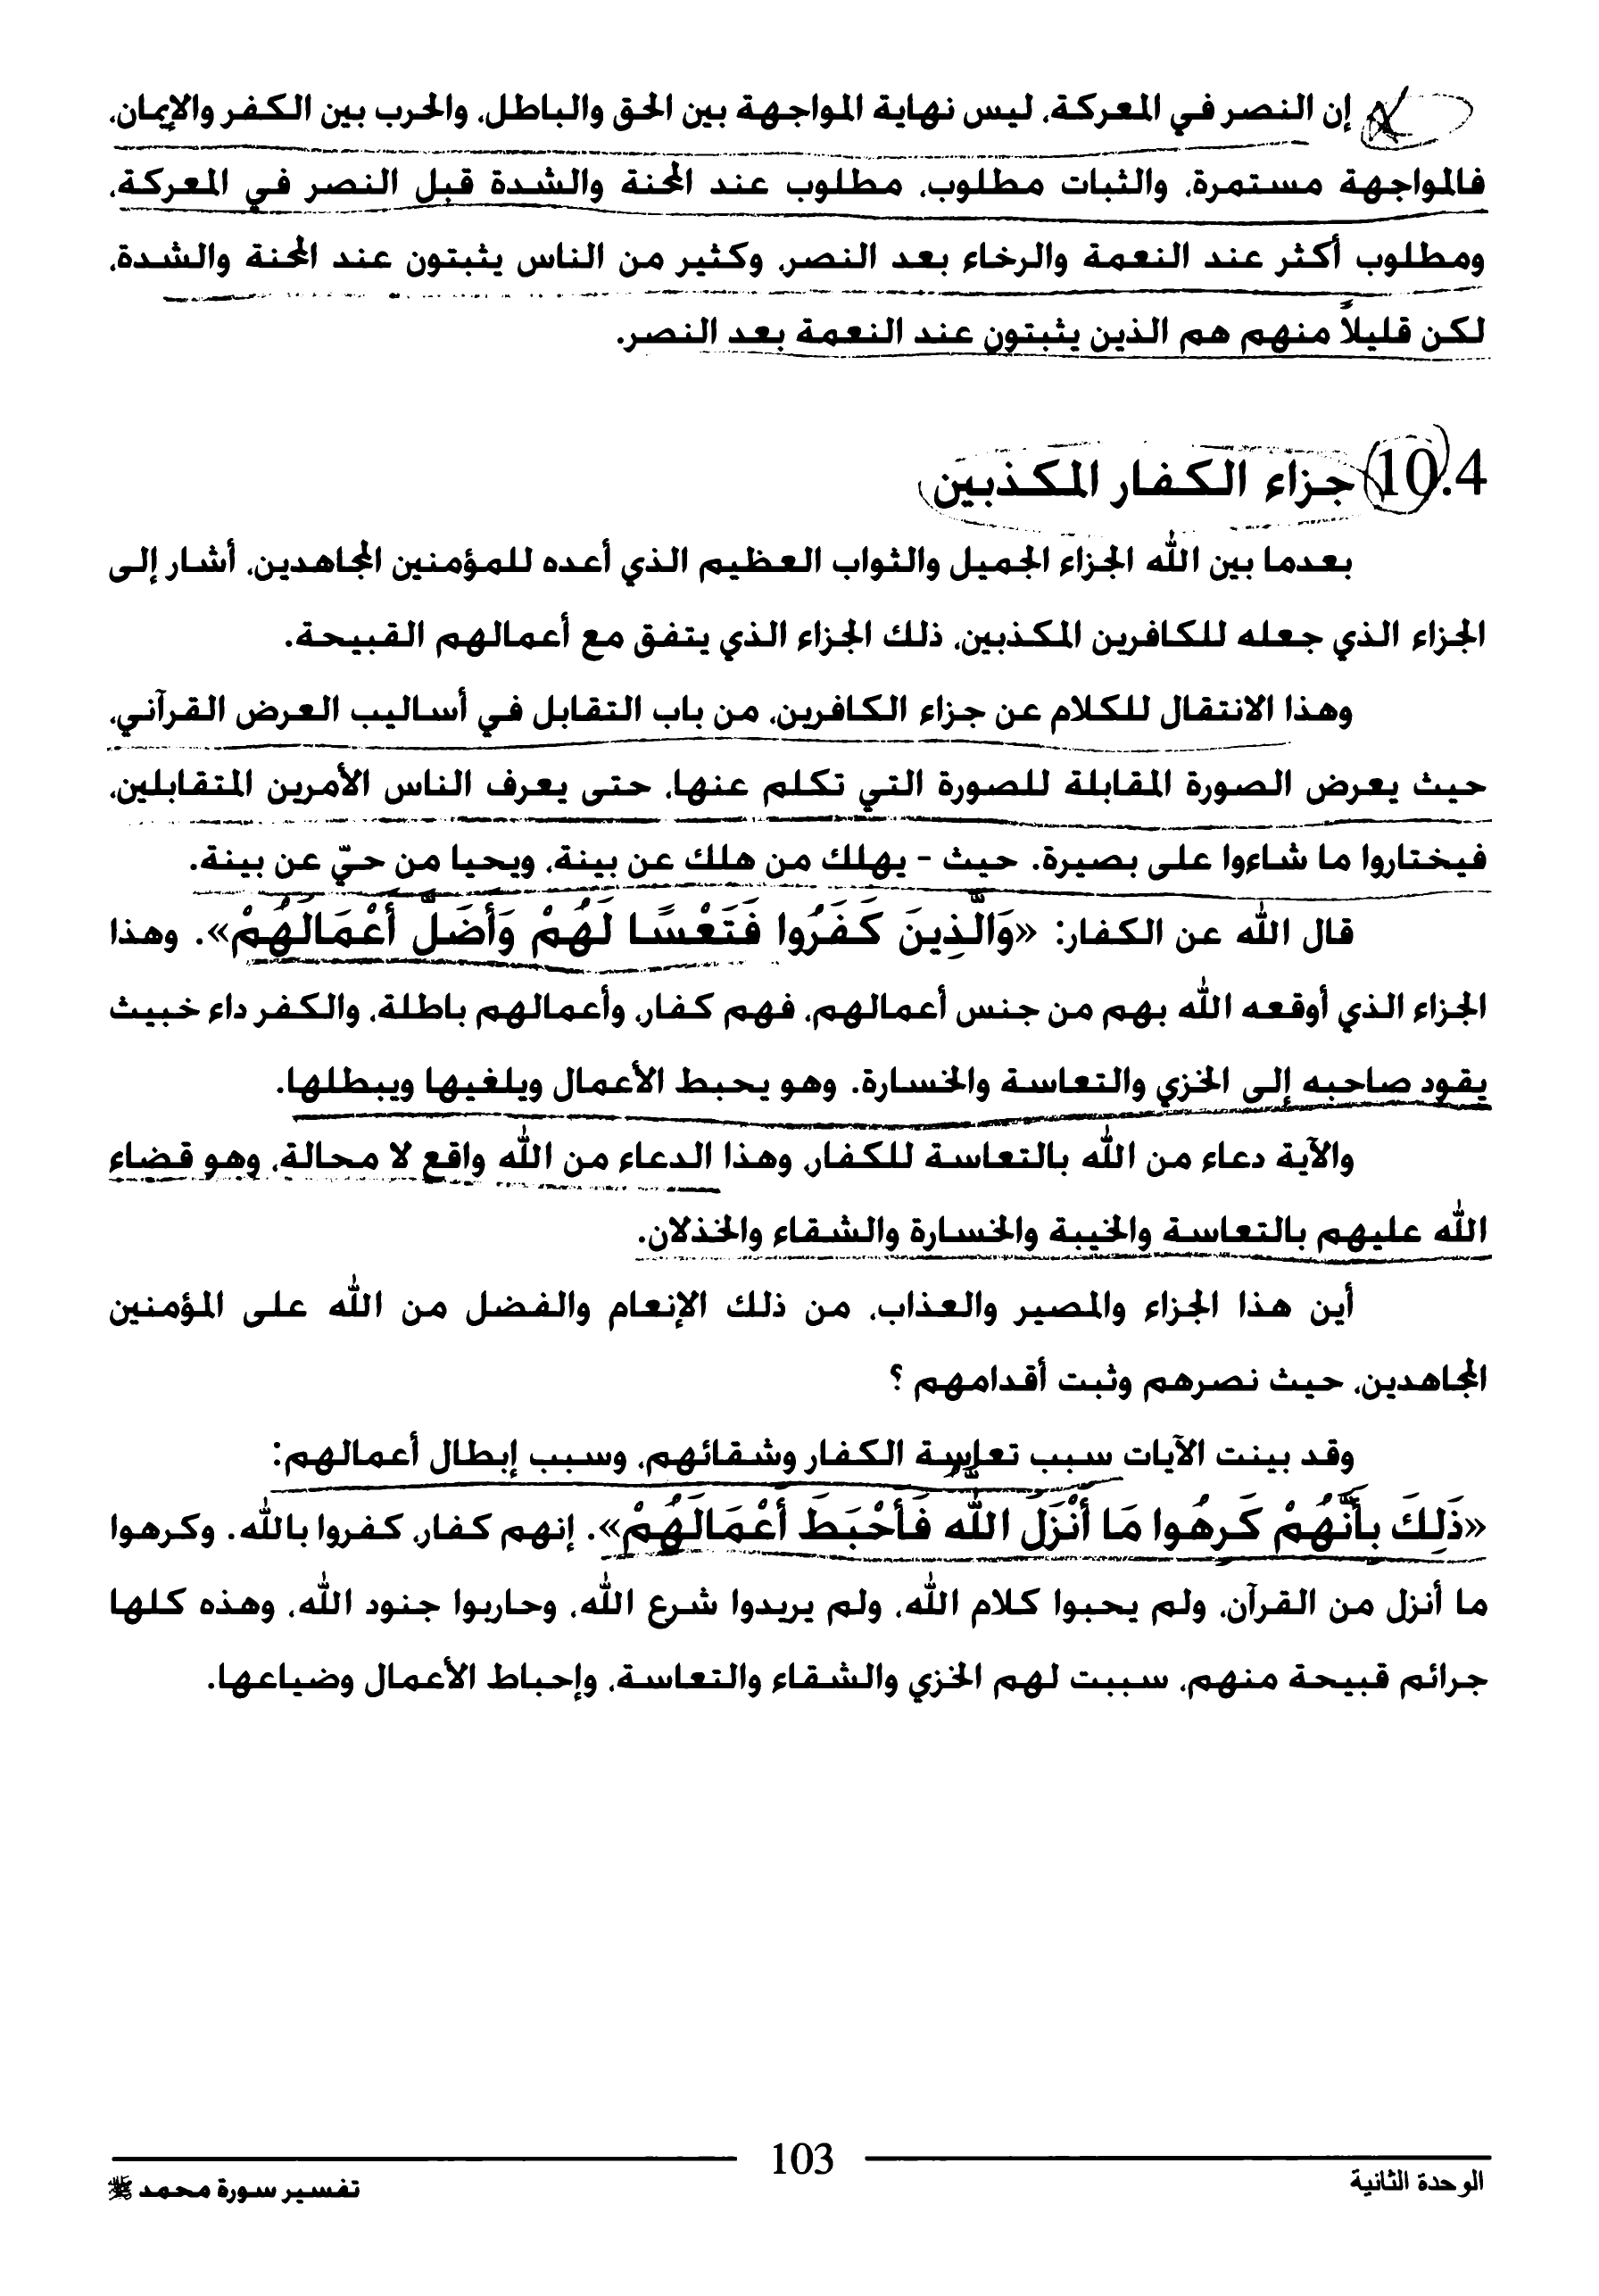 إن النصر في المعركة، ليس نهاية المواجهة بين الحق والباطل، والحرب بين الكفر والإيمان،
فالمواجهة مستمرة، والثبات مطلوب، مطلوب عند المحنة والشدة قبل النصر في المعركة،
ومطلوب أكثر عند النعمة والرخاء بعد النصر، وكثير من الناس يثبتون عند المحنة والشدة،
لكن قليلاً منهم هم الذين يثبتون عند النعمة بعد النصر.
10.4 جزاء الكفار المكذبين
بعدما بين الله الجزاء الجميل والثواب العظيم الذي أعده للمؤمنين المجاهدين، أشار إلى
الجزاء الذي جعله للكافرين المكذبين، ذلك الجزاء الذي يتفق مع أعمالهم القبيحة.
وهذا الانتقال للكلام عن جزاء الكافرين، من باب التقابل في أساليب العرض القرآني،
حيث يعرض الصورة المقابلة للصورة التي تكلم عنها، حتى يعرف الناس الأمرين المتقابلين،
فيختاروا ما شاءوا على بصيرة. حيث - يهلك من هلك عن بينة، ويحيا من حيّ عن بينة.
قال الله عن الكفار: «وَالَّذِينَ كَفَرُوا فَتَعْسًا لَهُمْ وَأَضَلَّ أَعْمَالَهُمْ». وهذا
الجزاء الذي أوقعه الله بهم من جنس أعمالهم، فهم كفار، وأعمالهم باطلة، والكفر داء خبيث
يقود صاحبه إلى الخزي والتعاسة والخسارة. وهو يحبط الأعمال ويلغيها ويبطلها.
والآية دعاء من الله بالتعاسة للكفار، وهذا الدعاء من الله واقع لا محالة، وهو قضاء
الله عليهم بالتعاسة والخيبة والخسارة والشقاء والخذلان.
أين هذا الجزاء والمصير والعذاب، من ذلك الإنعام والفضل من الله على المؤمنين
المجاهدين، حيث نصرهم وثبت أقدامهم ؟
وقد بينت الآيات سبب تعاسة الكفار وشقائهم، وسبب إبطال أعمالهم:
«ذَلِكَ بِأَنَّهُمْ كَرِهُوا مَا أَنْزَلَ اللَّه فَأَحْبَطَ أَعْمَالَهُمْ». إنهم كفار، كفروا بالله. وكرهوا
ما أنزل من القرآن، ولم يحبوا كلام الله، ولم يريدوا شرع الله، وحاربوا جنود الله، وهذه كلها
جرائم قبيحة منهم، سببت لهم الخزي والشقاء والتعاسة، وإحباط الأعمال وضياعها.
103
الوحدة الثانية
تفسير سورة محمد ﷺ